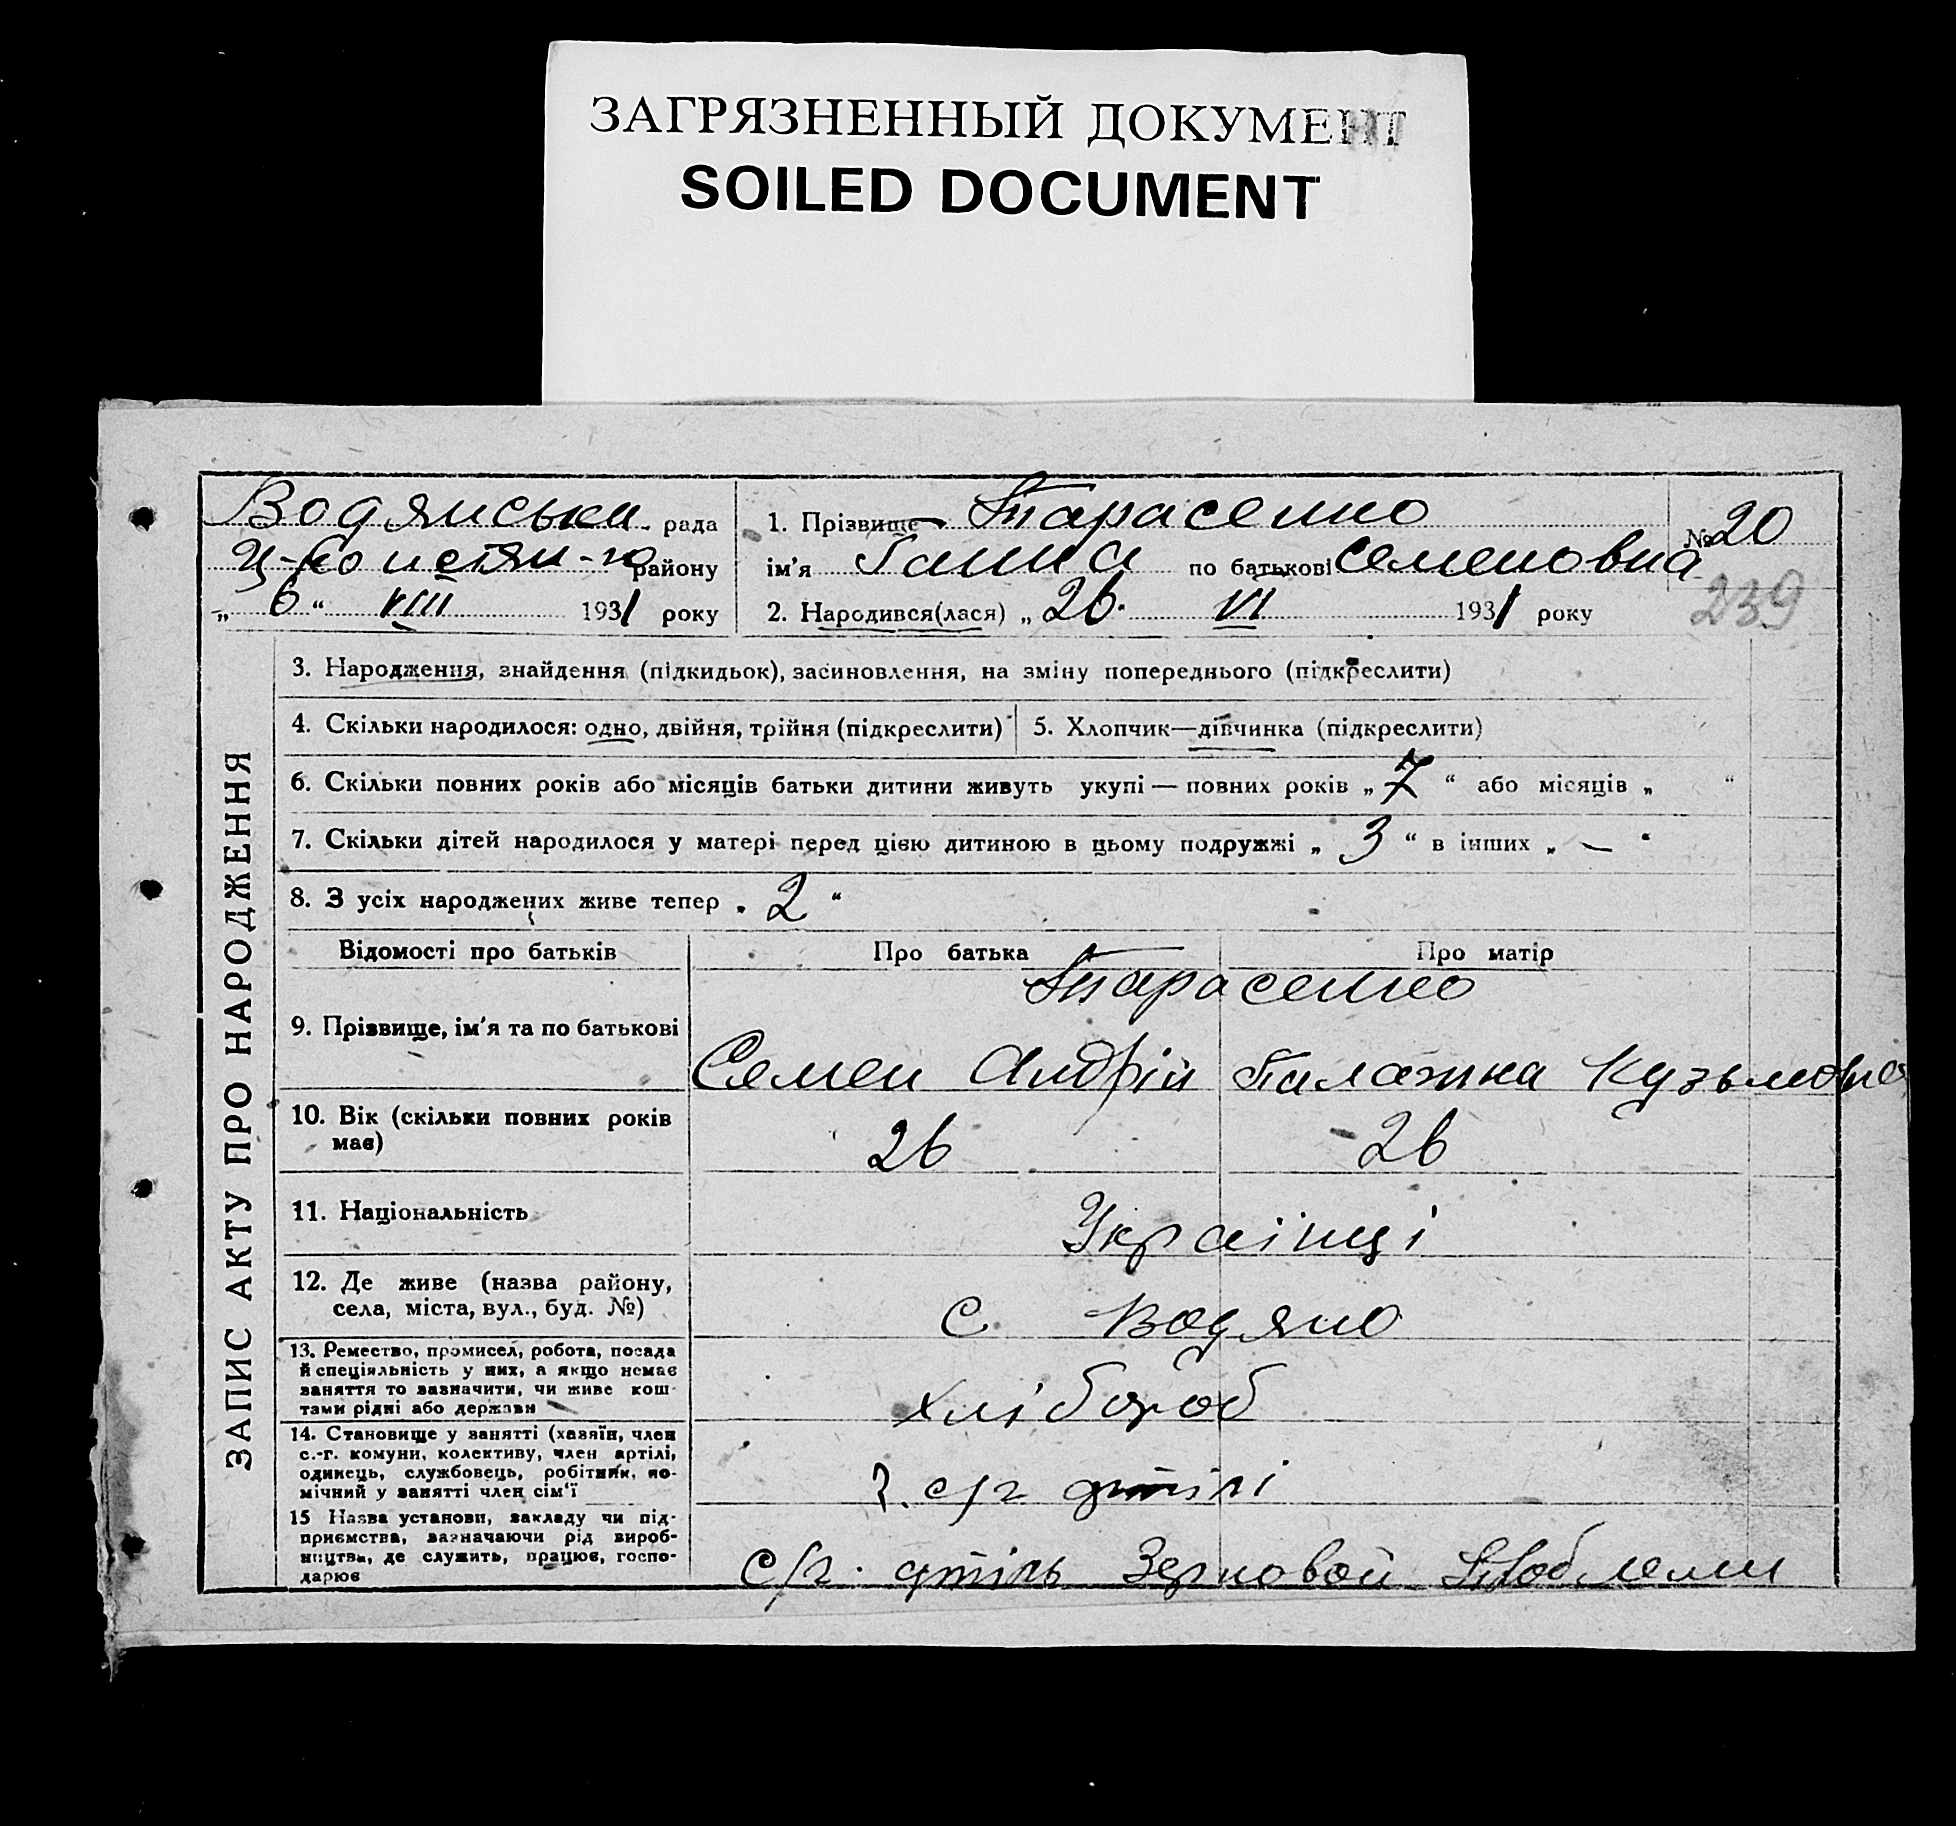 ЗАГРЯЗНЕННЫЙ ДОКУМЕНТ
SOILED DOCUMENT
Водянська рада
району
„ 6 “ VIII 1931 року
1. Прізвище Тарасенко
№ 20
ім'я Ганна по батькові Семеновна
2. Народився(лася) „ 26. VI 1931 року
239
ЗАПИС АКТУ ПРО НАРОДЖЕННЯ
3. Народження, знайдення (підкидьок), засиновлення, на зміну попереднього (підкреслити)
4. Скільки народилося: одно, двійня, трійня (підкреслити)
5. Хлопчик—дівчинка (підкреслити)
6. Скільки повних років або місяців батьки дитини живуть укупі — повних років „ 7 “ або місяців „ “
7. Скільки дітей народилося у матері перед цією дитиною в цьому подружжі „ 3 “ в інших „ — “
8. З усіх народжених живе тепер „ 2 “
Відомості про батьків
Про батька
Про матір
Тарасенко
9. Прізвище, ім'я та по батькові
Семен Андрій
Палажка Кузьмовна
10. Вік (скільки повних років має)
26
26
11. Національність
Українці
12. Де живе (назва району, села, міста, вул., буд. №)
с Водяно
13. Ремество, промисел, робота, посада
й спеціяльність у них, а якщо немає
заняття то зазначити, чи живе кош-
тами рідні або держави
хлібороб
14. Становище у занятті (хазяїн, член
с.-г. комуни, колективу, член артілі,
одинець, службовець, робітник, по-
мічний у занятті член сім'ї
с/г артілі
15 Назва установи, закладу чи під-
приємства, зазначаючи рід вироб-
ництва, де служить, працює, госпо-
дарює
с/г. артіль Зерновой Проблеми